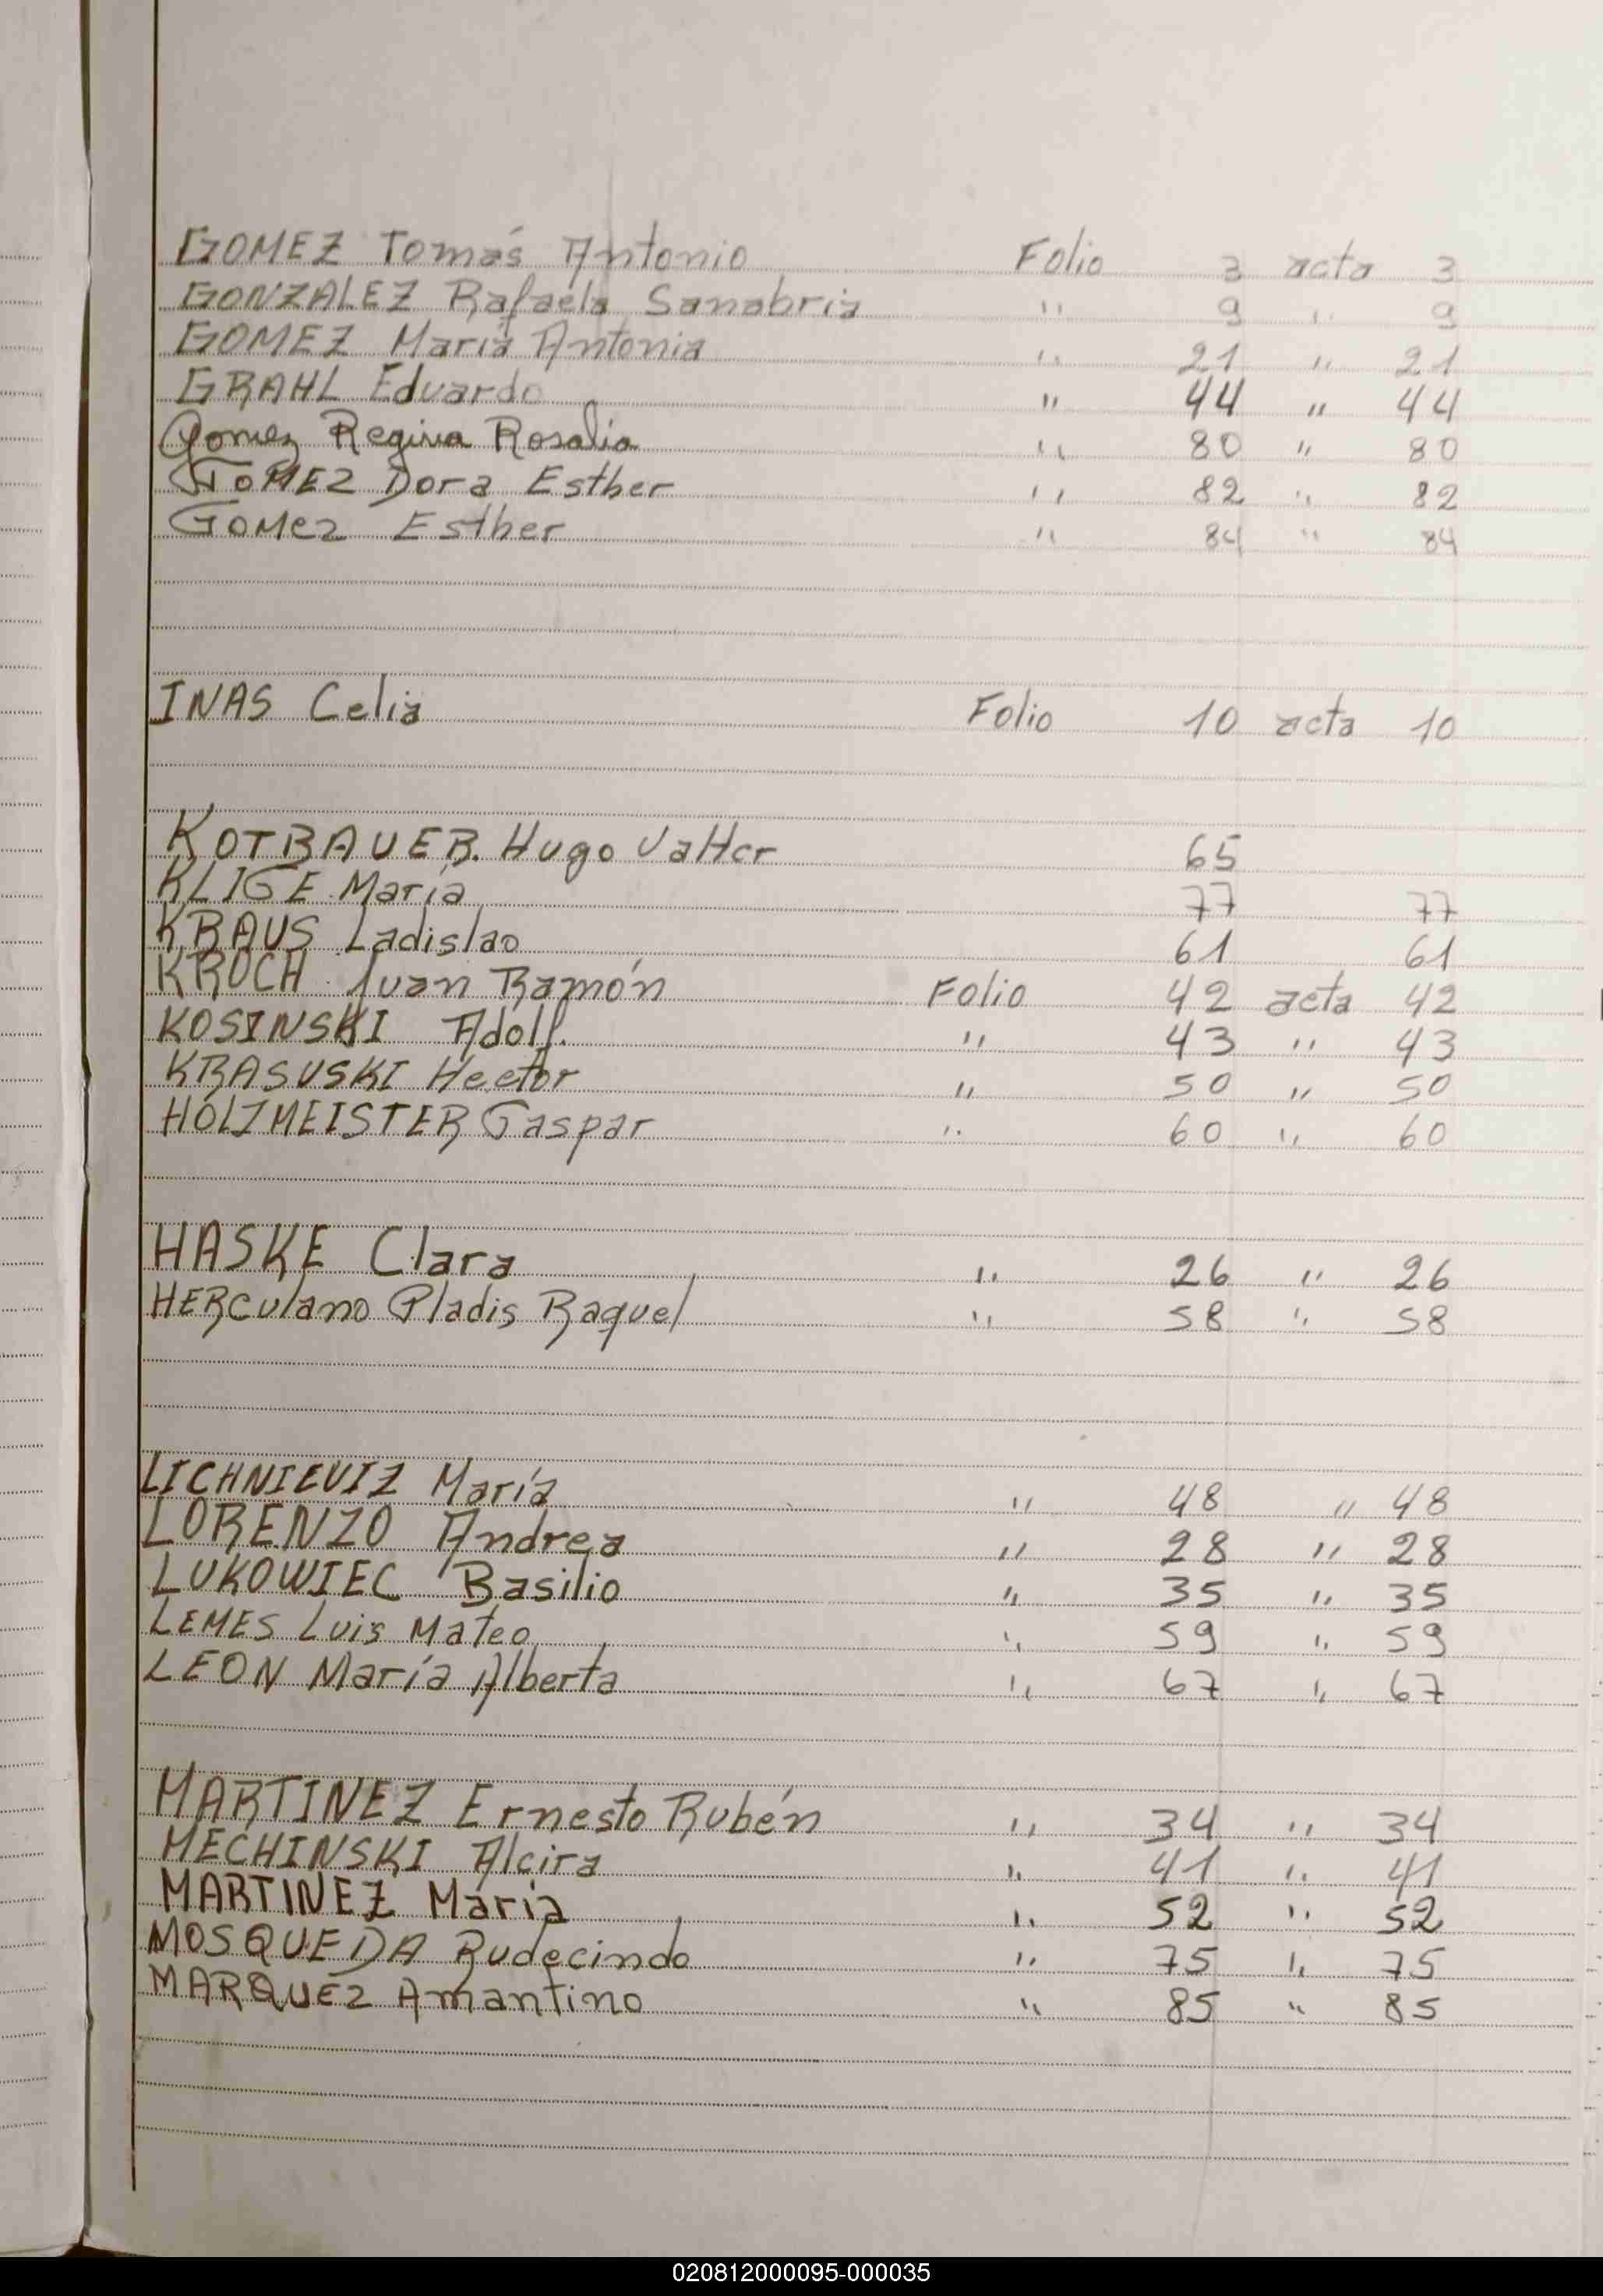 GOMEZ Tomás Antonio Folio 3 acta 3
GONZALEZ Rafaela Sanabria " 9 " 9
GOMEZ María Antonia " 21 " 21
GRAHL Eduardo " 44 " 44
Gomez Regina Rosalia " 80 " 80
GOMEZ Dora Esther " 82 " 82
GOMez Esther " 84 " 84
INAS Celia Folio 10 acta 10
KOTBAUER. Hugo Valter 65
KLIGE María 77 77
KRAUS Ladislao 61 61
KROCH Juan Ramón Folio 42 acta 42
KOSINSKI Adolf. " 43 " 43
KRASUSKI Hector " 50 " 50
HOLZMEISTER Gaspar " 60 " 60
HASKE Clara " 26 " 26
HERCulano Gladis Raquel " 58 " 58
LICHNIEVIZ María " 48 " 48
LORENZO Andrea " 28 " 28
LUKOWIEC Basilio " 35 " 35
LEMES Luis Mateo " 59 " 59
LEON María Alberta " 67 " 67
MARTINEZ Ernesto Rubén " 34 " 34
MECHINSKI Alcira " 41 " 41
MARTINEZ María " 52 " 52
MOSQUEDA Rudecindo " 75 " 75
MARQUEZ Amantino " 85 " 85
020812000095-000035